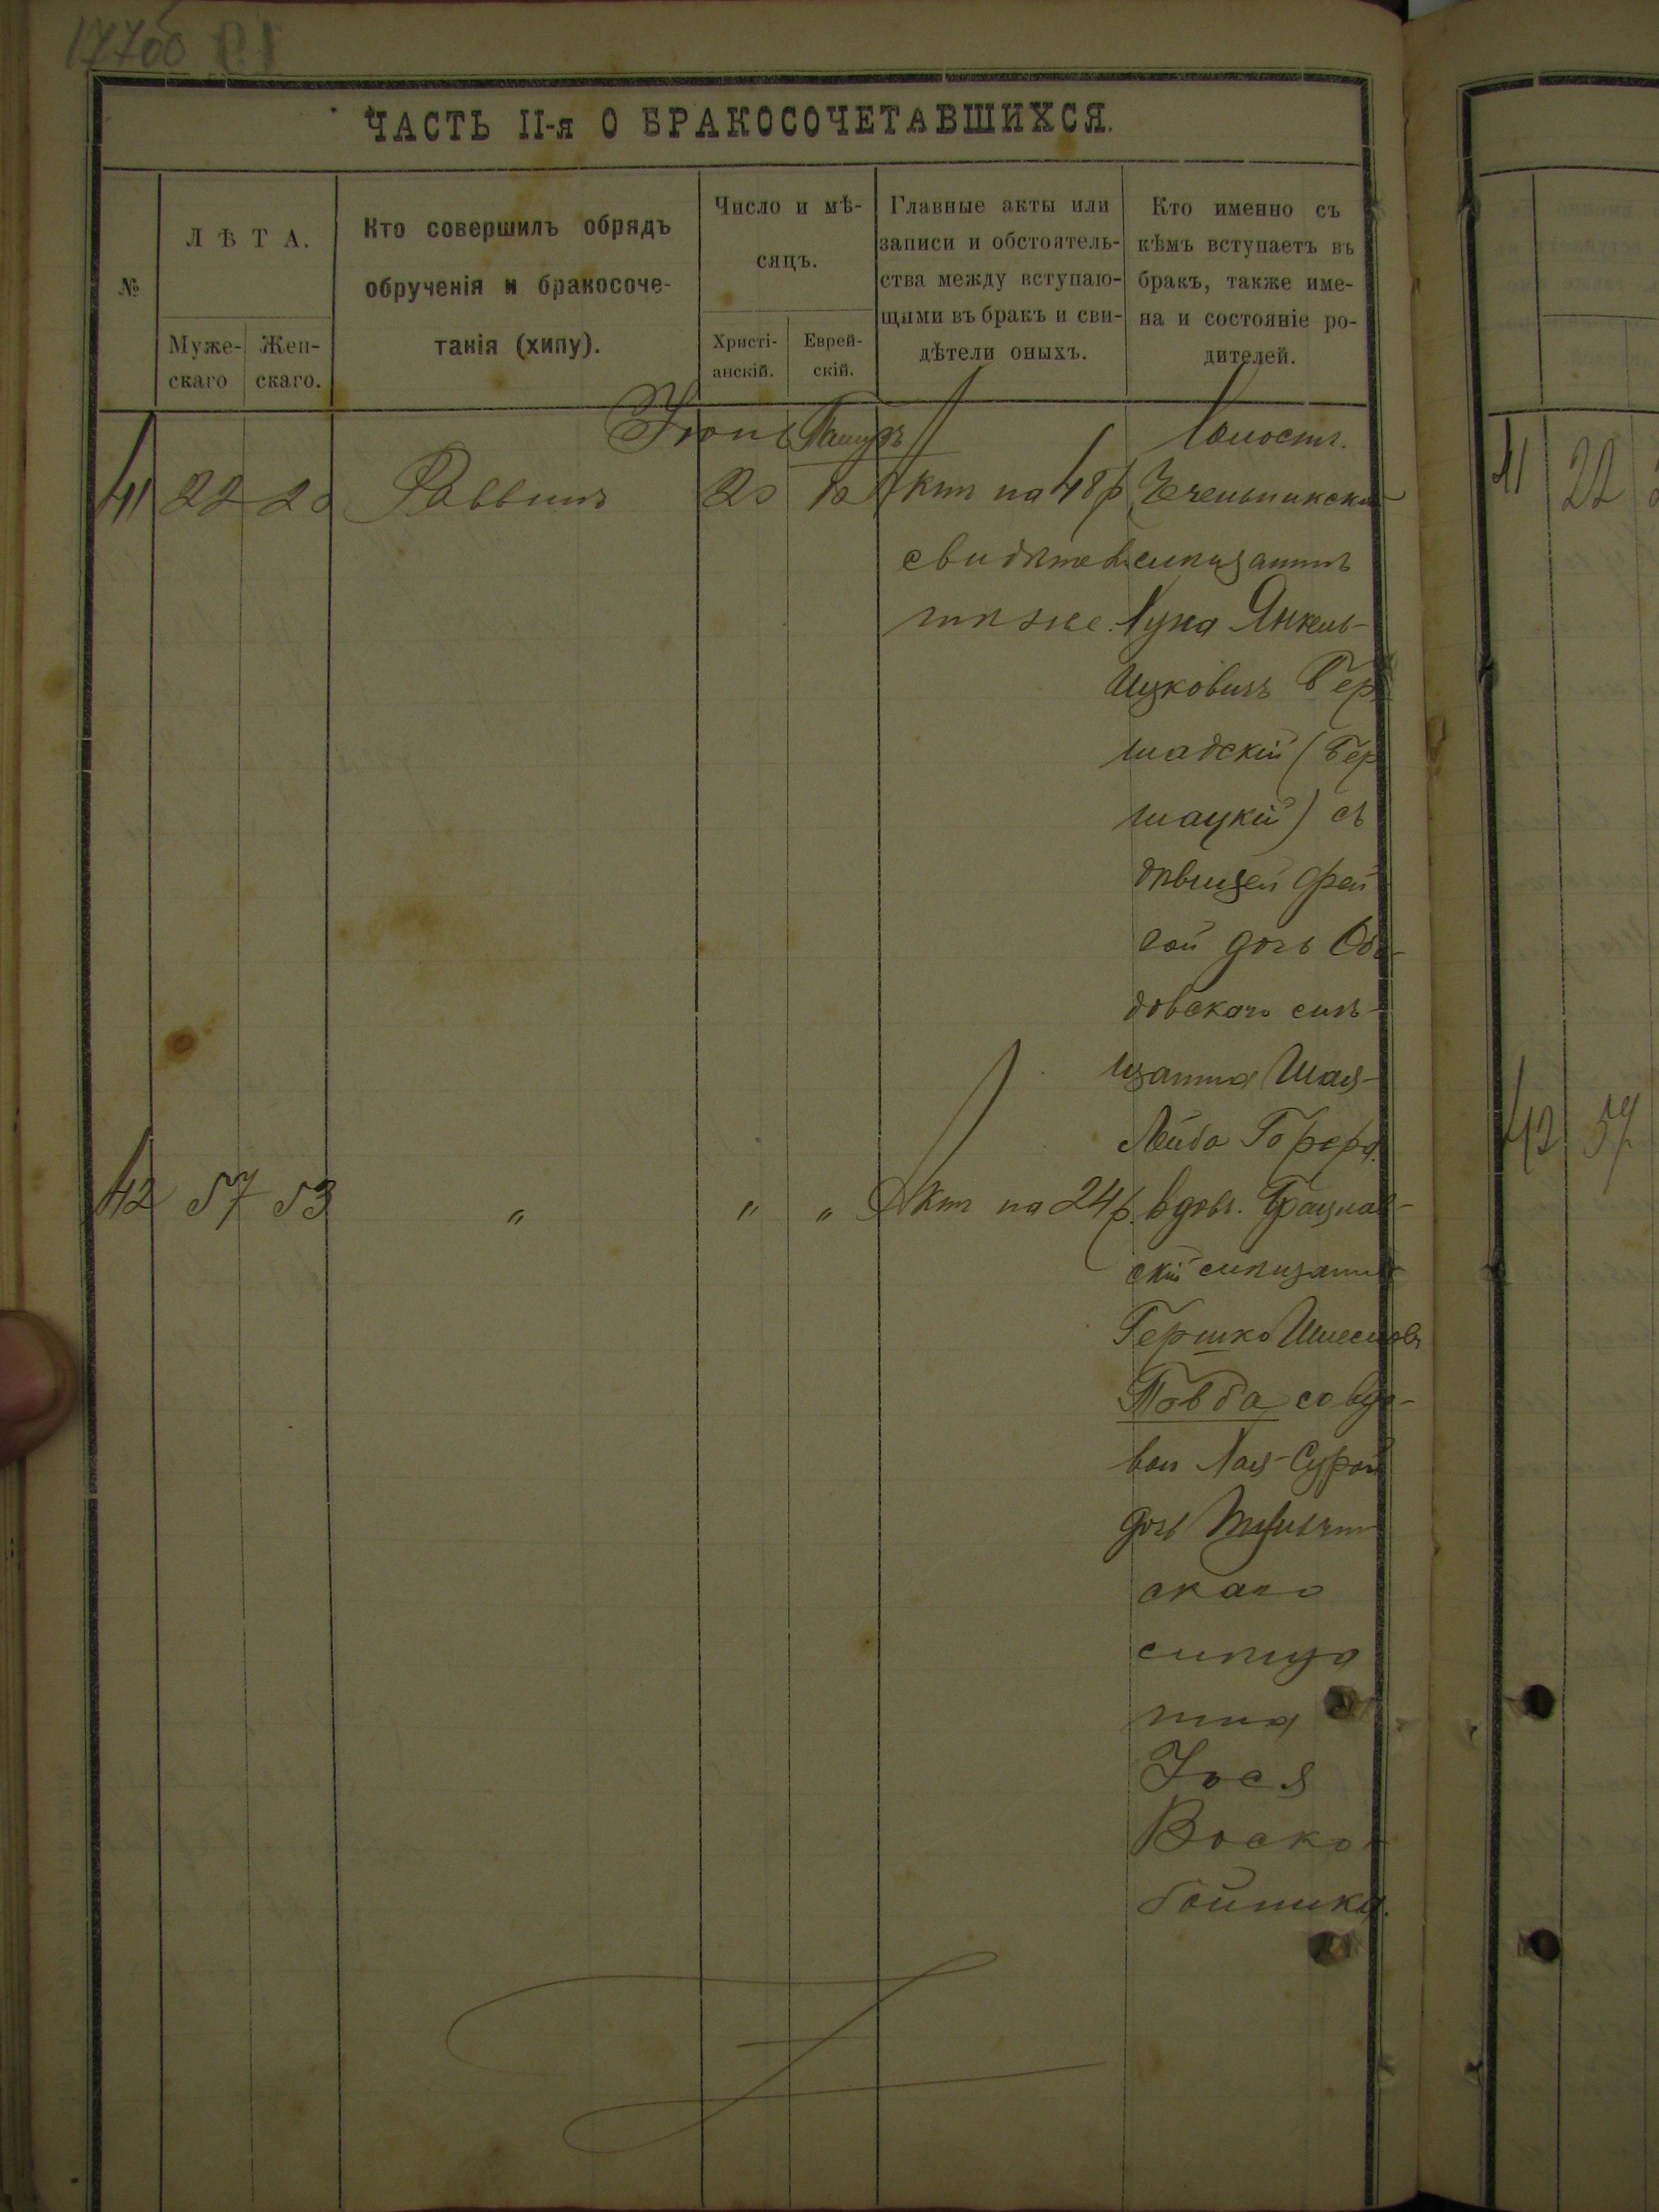 177об
ЧАСТЬ II-я О БРАКОСОЧЕТАВШИХСЯ.
№
ЛѢТА.
Муже-
скаго
Жен-
скаго.
Кто совершилъ обрядъ
обрученія и бракосоче-
танія (хипу).
Число и мѣ-
сяцъ.
Христі-
анскій.
Еврей-
скій.
Главные акты или
записи и обстоятель-
ства между вступаю-
щими въ бракъ и сви-
дѣтели оныхъ.
Кто именно съ
кѣмъ вступаетъ въ
бракъ, также име-
на и состояніе ро-
дителей.
Холост.
41 22 20 Раввинъ 20 Актъ на 48 р. Чечельникскій
свидѣтел. мѣщанинъ
тѣ же. Янкель-
Ицковичъ Бер
шадскій (Бер
шацкій) съ
дѣвицей Фей
гой дочь Обо-
довскаго мѣ-
щанина Шая-
Лейба
42 57 53 " " " Актъ на 24 р. вдов. Брацлав-
скій мѣщанинъ
Гершко
со вдо-
вой Хая-Сурой
дочь
скаго
мѣща
нина
Іося
Воско-
бойника.
41 22
42 57